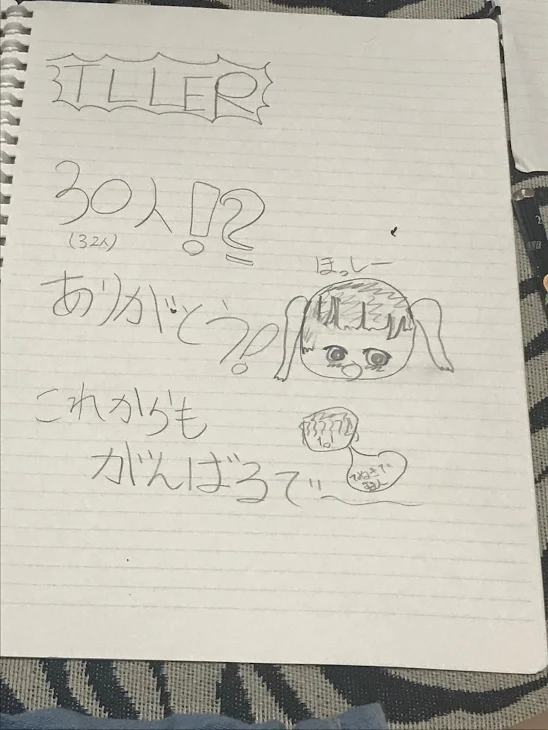 TLLER
30人!?
(32人)
ほっしー
ありがとう!!
これからも
がんばろで〜